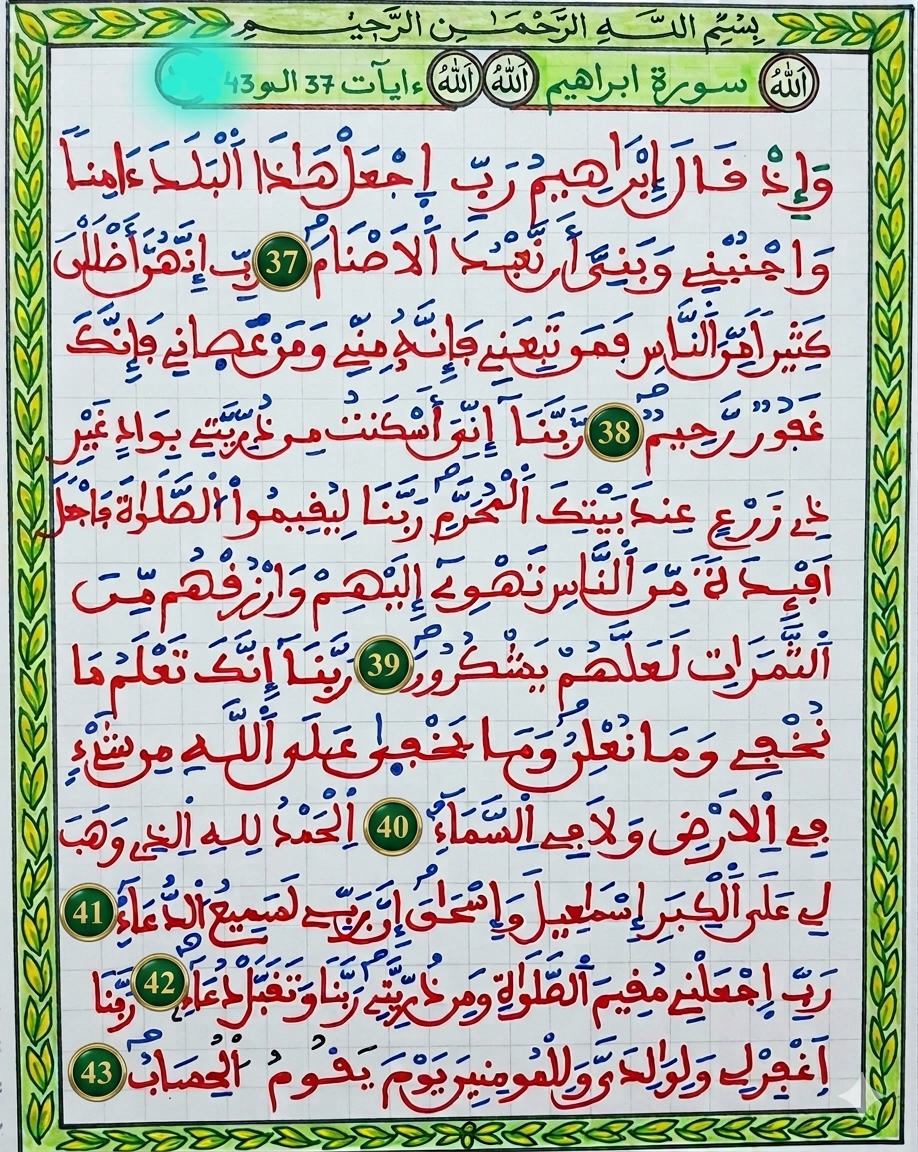 بِسْمِ اللَّـهِ الرَّحْمَـٰنِ الرَّحِيمِ
الله سورة ابراهيم الله الله ءايآت 37 الى 43
وَإِذْ قَالَ إِبْرَاهِيمُ رَبِّ اِجْعَلْ هَاذَا اَلْبَلَدَ ءَامِناً
وَاجْنُبْنِے وَبَنِيَّ أَن نَّعْبُدَ اَلَاصْنَامَ 37 رَبِّ إِنَّهُنَّ أَضْلَلْنَ
كَثِيراً مِّنَ اَلنَّاسِ فَمَن تَبِعَنِے فَإِنَّهُۥ مِنِّے وَمَنْ عَصَانِے فَإِنَّكَ
غَفُورٌ رَّحِيمٌ 38 رَّبَّنَآ إِنِّيَ أَسْكَنتُ مِن ذُرِّيَّتِے بِوَادٍ غَيْرِ
ذِے زَرْعٍ عِندَ بَيْتِكَ اَلْمُحَرَّمِ رَبَّنَا لِيُقِيمُواْ اَلصَّلَوٰةَ فَاجْعَلَ
اَفْـِٕدَةً مِّنَ اَلنَّاسِ تَهْوِےٓ إِلَيْهِمْ وَارْزُقْهُم مِّنَ
اَلثَّمَرَاتِ لَعَلَّهُمْ يَشْكُرُونَ 39 رَبَّنَآ إِنَّكَ تَعْلَمُ مَا
نُخْفِے وَمَا نُعْلِنُ وَمَا يَخْفىٰ عَلَى اَللَّهِ مِن شَےْءٍ
فِے اِلَارْضِ وَلَا فِے اِلسَّمَآءِ 40 اِلْحَمْدُ لِلهِ اِلذِے وَهَبَ
لِے عَلَى اَلْكِبَرِ إِسْمَٰعِيلَ وَإِسْحَٰقَ إِنَّ رَبِّے لَسَمِيعُ اُلدُّعَآءِ 41
رَبِّ اِجْعَلْنِے مُقِيمَ اَلصَّلَوٰةِ وَمِن ذُرِّيَّتِے رَبَّنَا وَتَقَبَّلْ دُعَآءِ 42 رَبَّنَا
اَغْفِرْ لِے وَلِوَٰلِدَيَّ وَلِلْمُومِنِينَ يَوْمَ يَقُومُ اُلْحِسَابُ 43